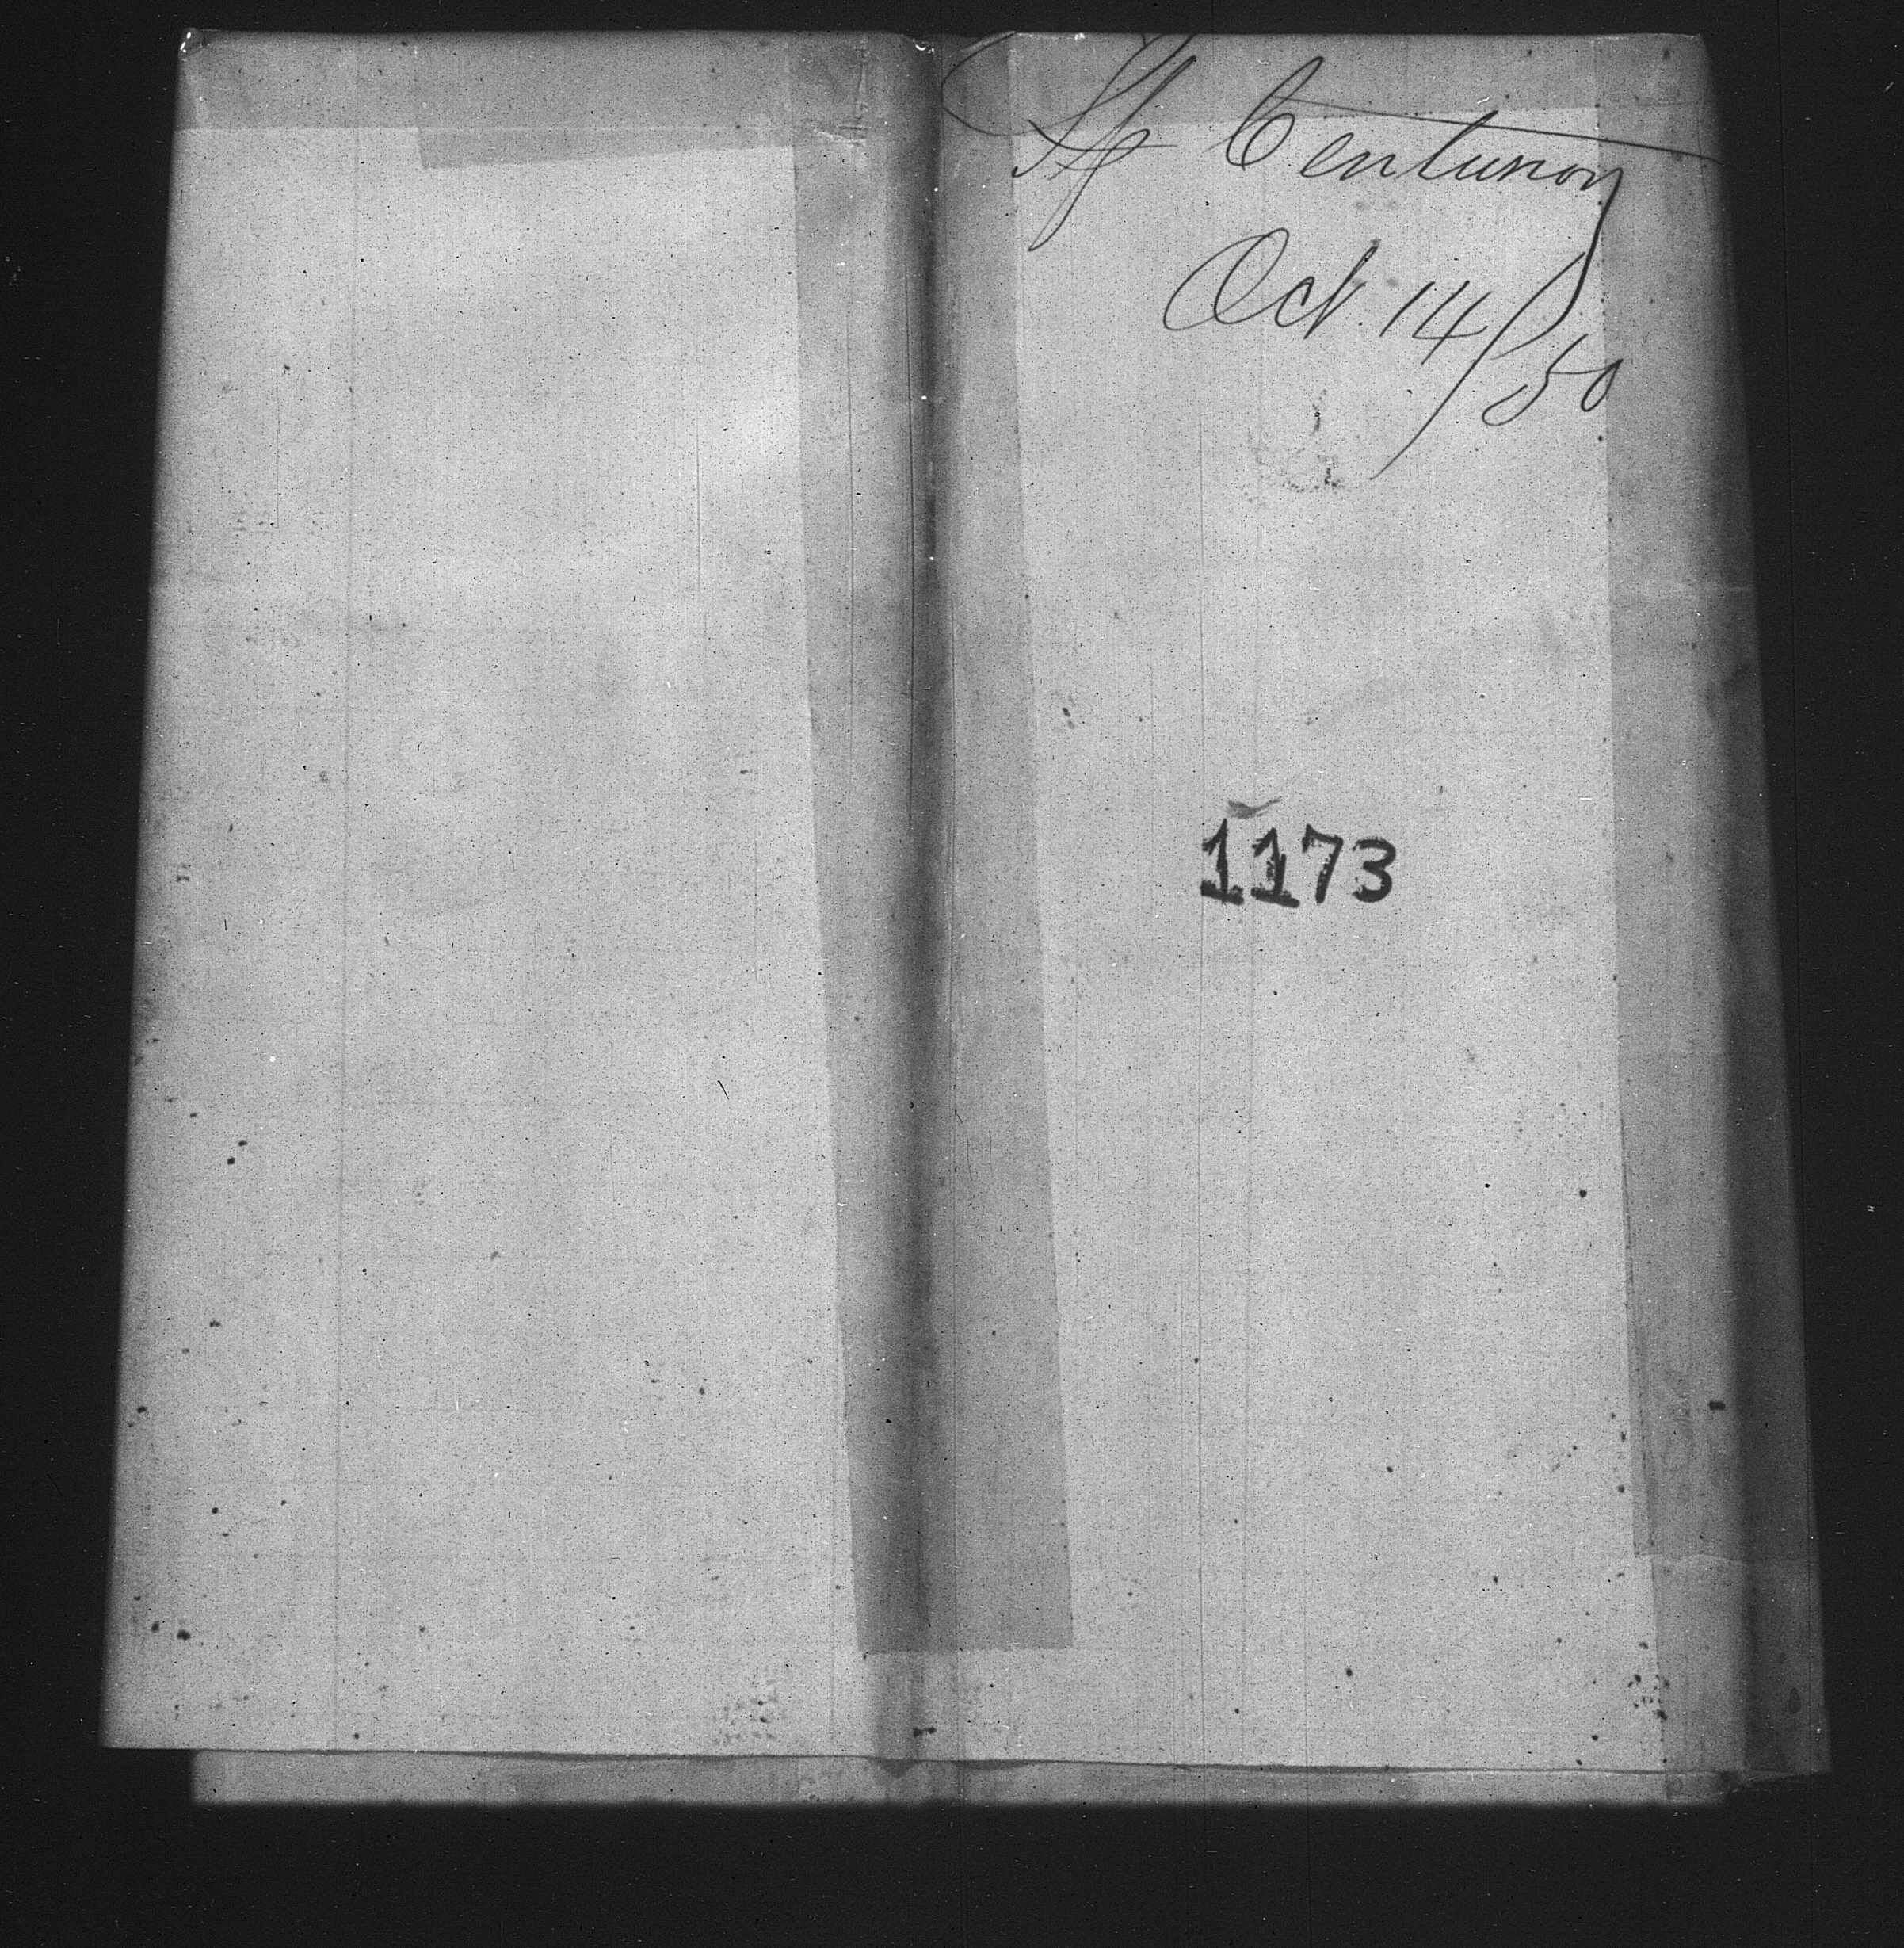 Sp Centurion
Oct. 14/50
1173